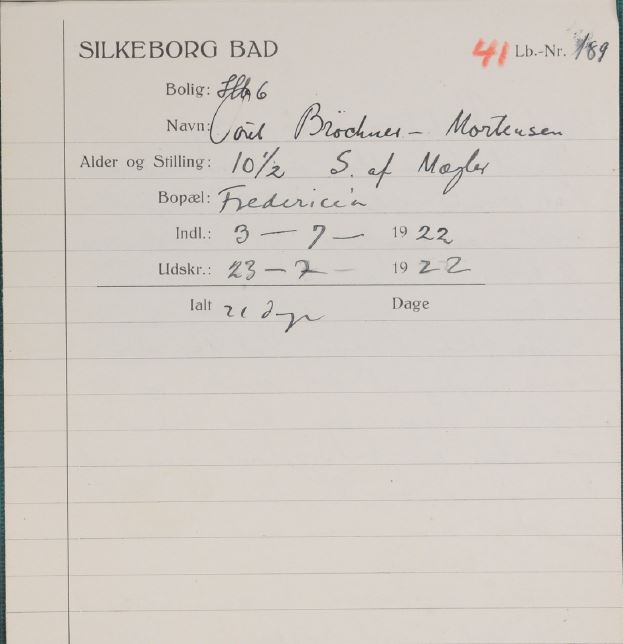 SILKEBORG BAD 41 Lb.-Nr. 189
Bolig: 6
Navn: Bröchner - Mortensen
Alder og Stilling: 10½ S. af Mægler
Bopæl: Fredericia
Indl.: 3 - 7 - 1922
Udskr.: 23 - 7 - 1922
Ialt 21 Dage Dage